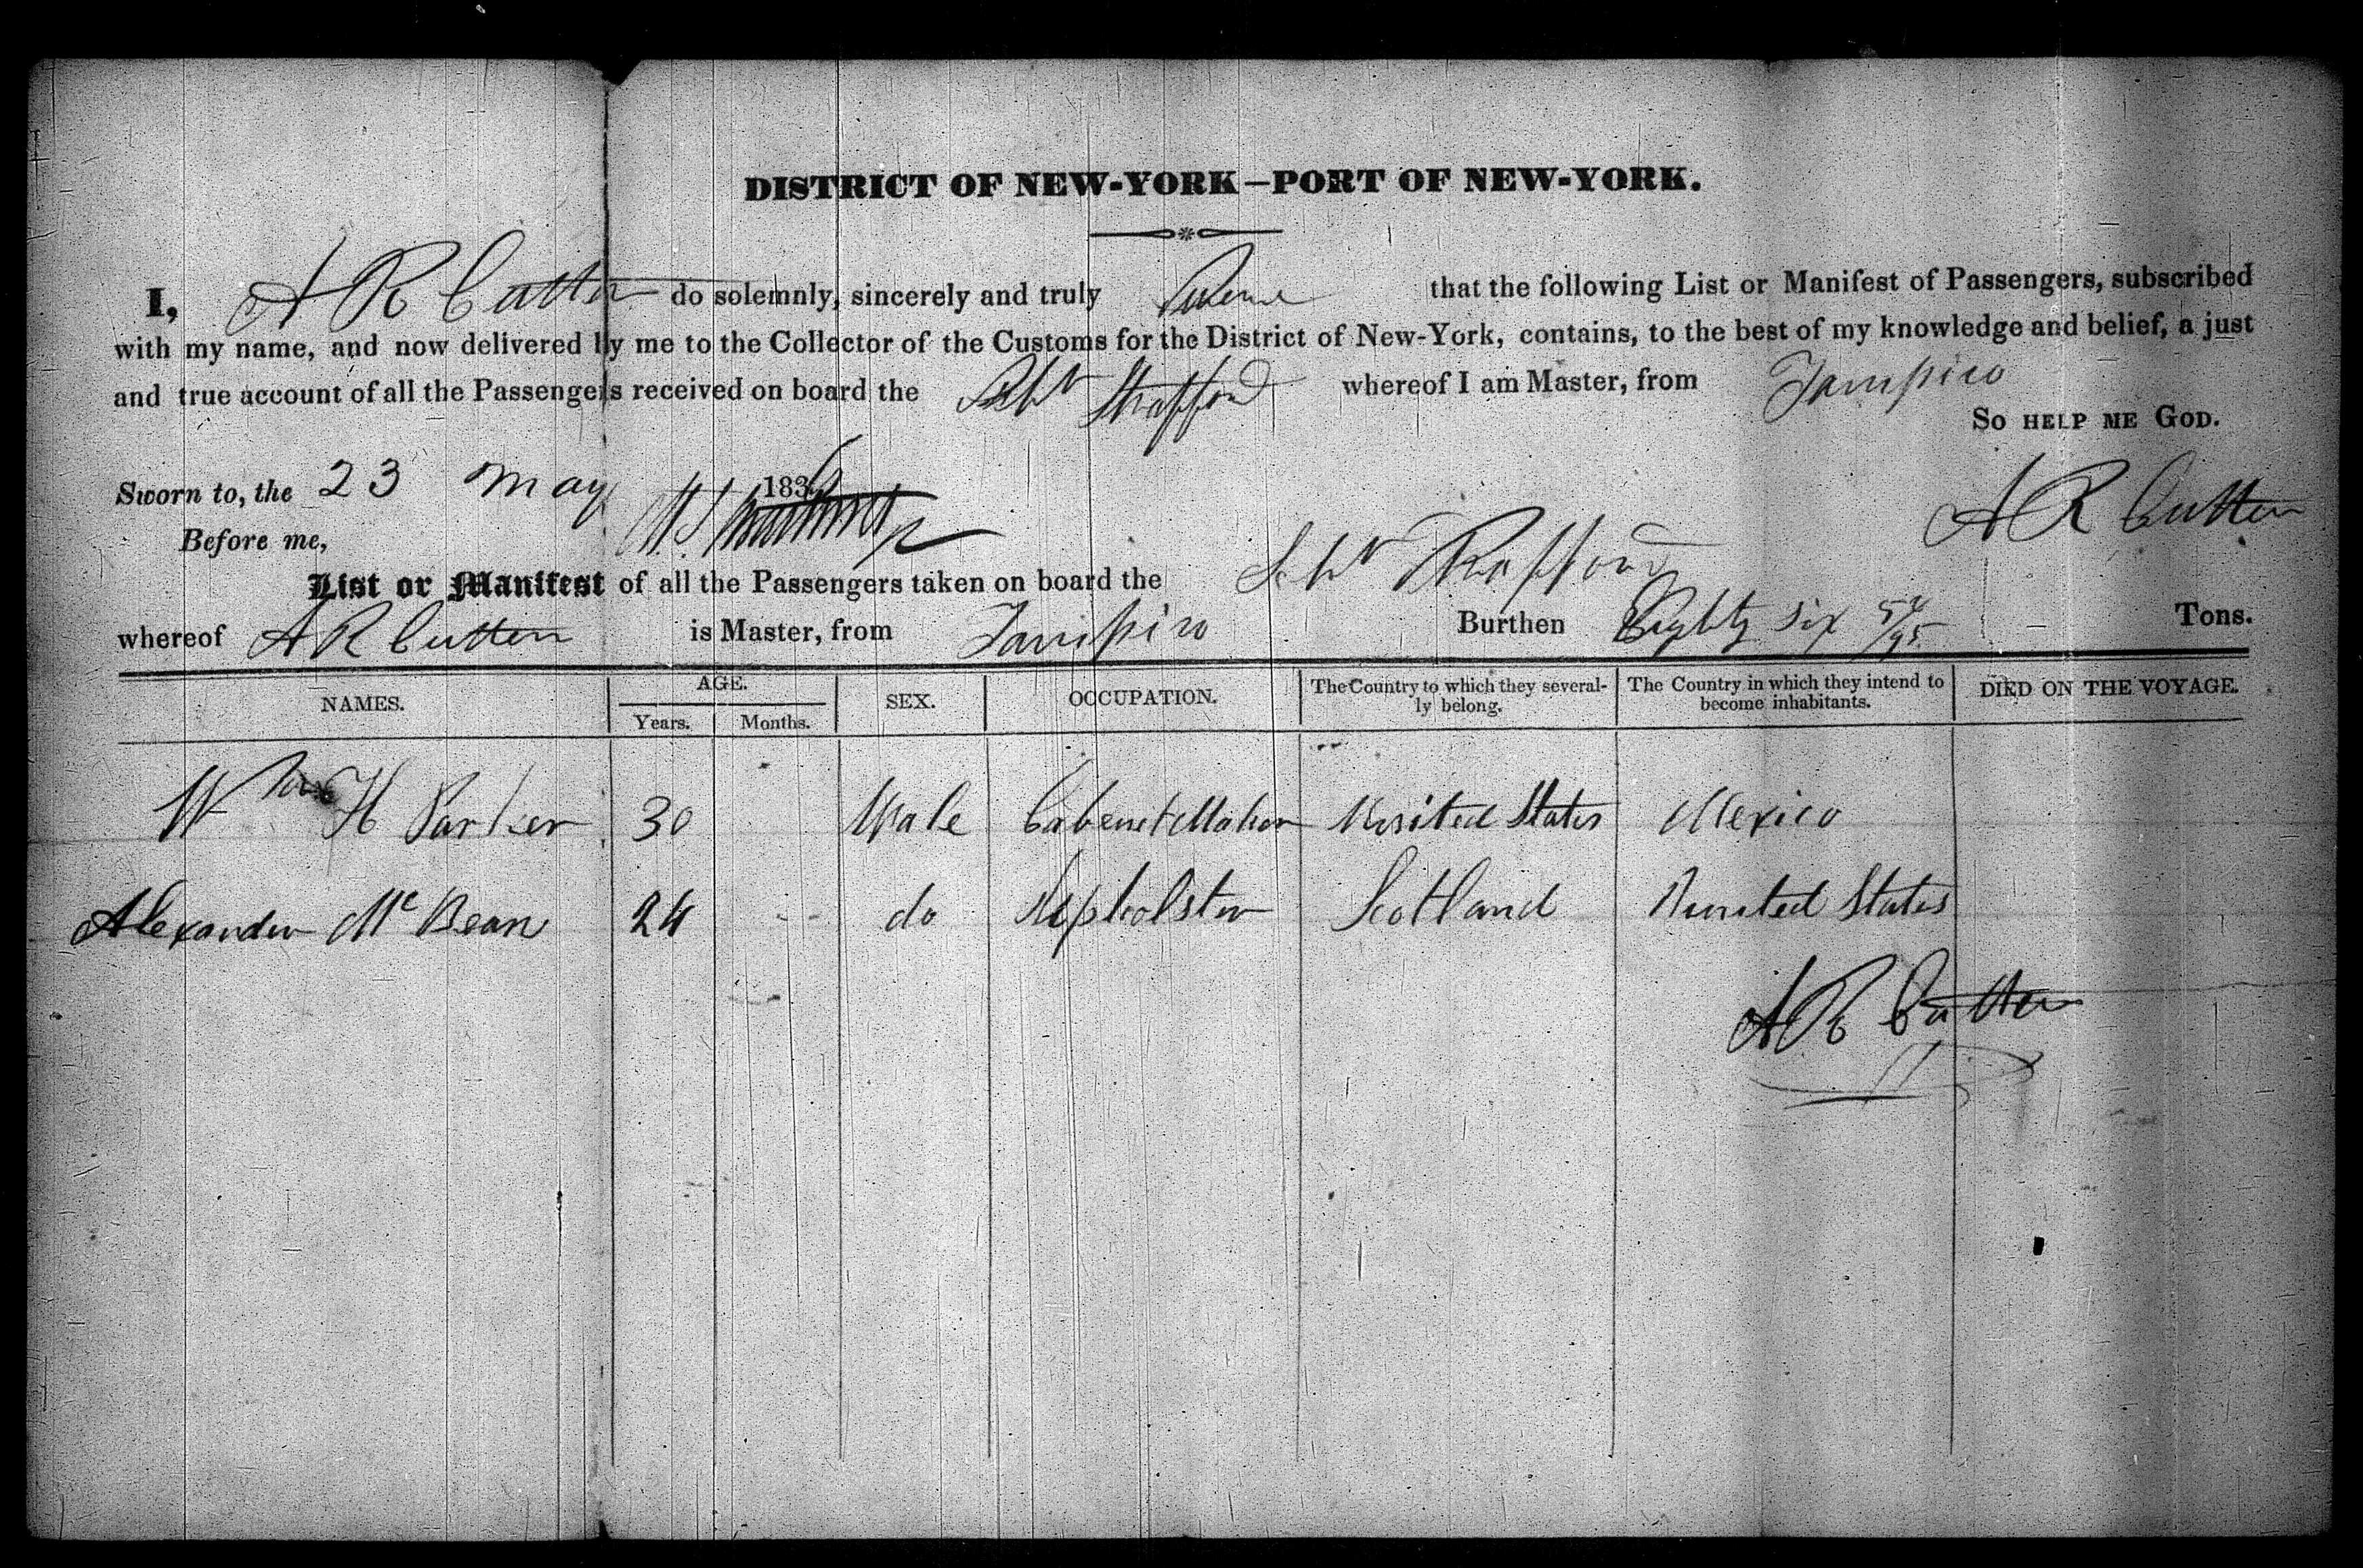 DISTRICT OF NEW-YORK—PORT OF NEW-YORK.
I, A R Cutter do solemnly, sincerely and truly Swear that the following List or Manifest of Passengers, subscribed
with my name, and now delivered by me to the Collector of the Customs for the District of New-York, contains, to the best of my knowledge and belief, a just
and true account of all the Passengers received on board the Schr Strafford whereof I am Master, from Tampico
So HELP ME GOD.
Sworn to, the 23 May 1836
A R Cutter
Before me,
List or Manifest of all the Passengers taken on board the Schr Strafford
whereof A R Cutter is Master, from Tampico Burthen Eighty Six 54/95 Tons.
NAMES. AGE. Years. Months. SEX. OCCUPATION. The Country to which they severally belong. The Country in which they intend to become inhabitants. DIED ON THE VOYAGE.
Wm H Parker 30 Male Cabenet Maker United States Mexico
Alexander Mc Bean 24 do Upholster Scotland United States
A R Cutter